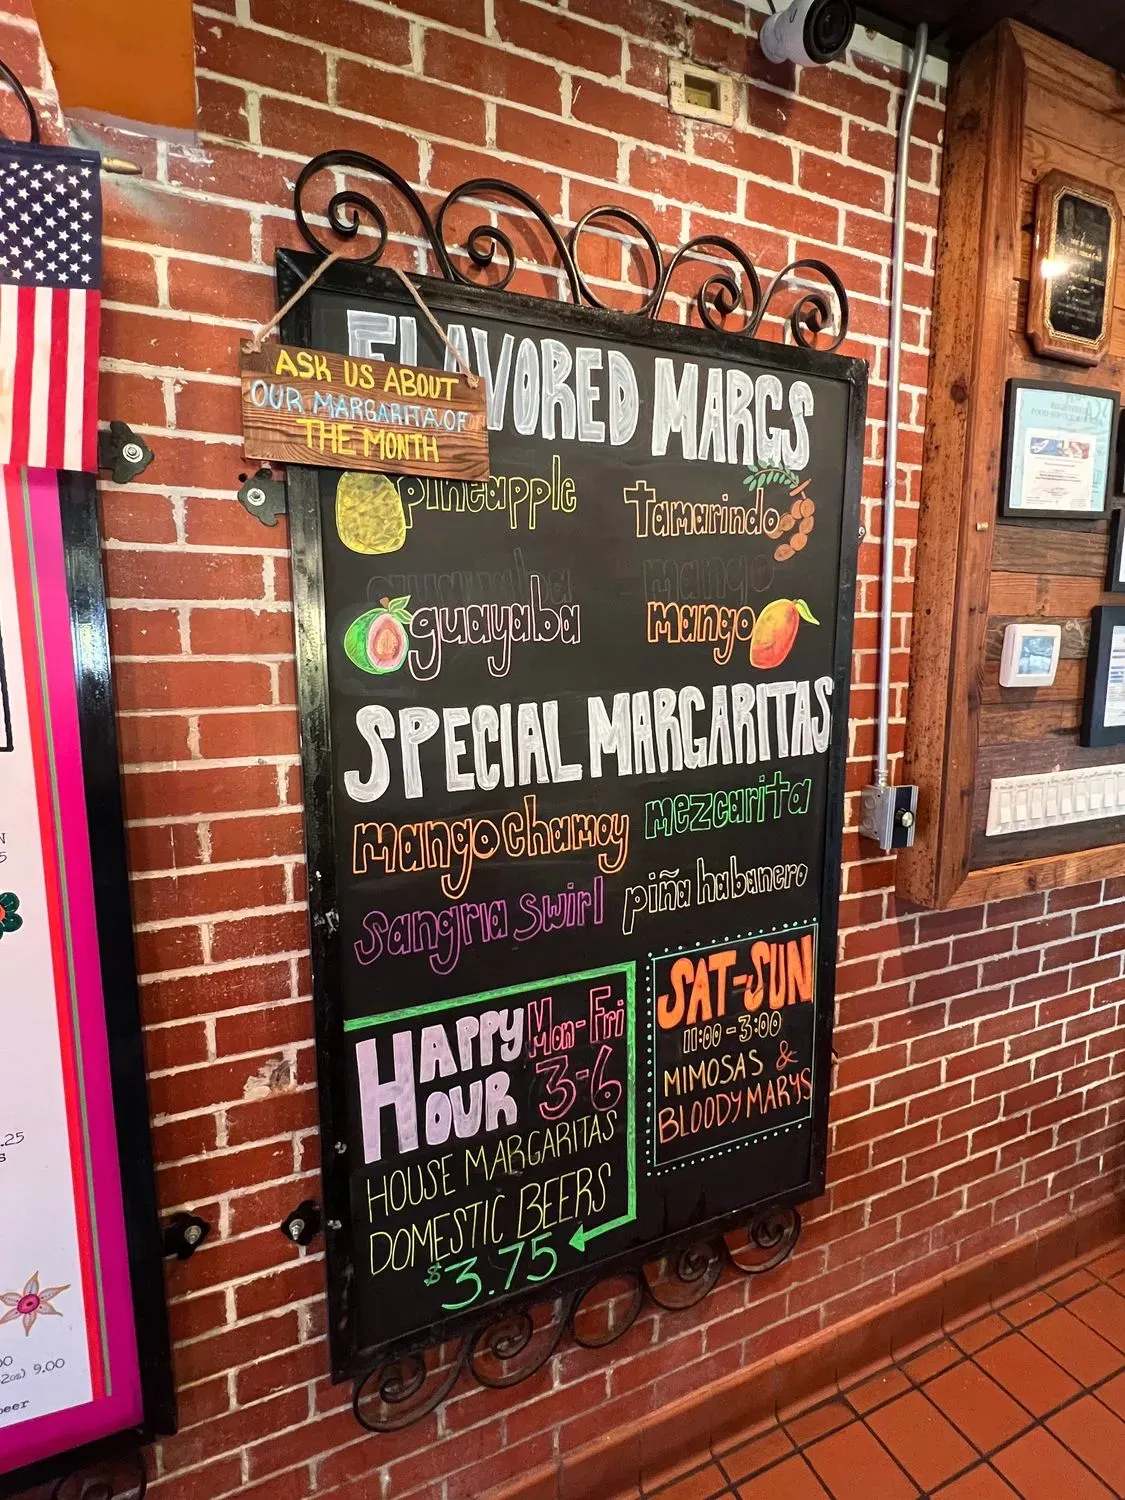 ASK US ABOUT
OUR MARGARITA OF
THE MONTH
FLAVORED MARGS
pineapple
tamarindo
guayaba
mango
guayaba
mango
SPECIAL MARGARITAS
mango chamoy
mezcarita
sangria swirl
piña habanero
HAPPY HOUR
Mon-Fri
3-6
HOUSE MARGARITAS
DOMESTIC BEERS
$3.75
SAT-SUN
11:00-3:00
MIMOSAS &
BLOODY MARYS
.25
9.00